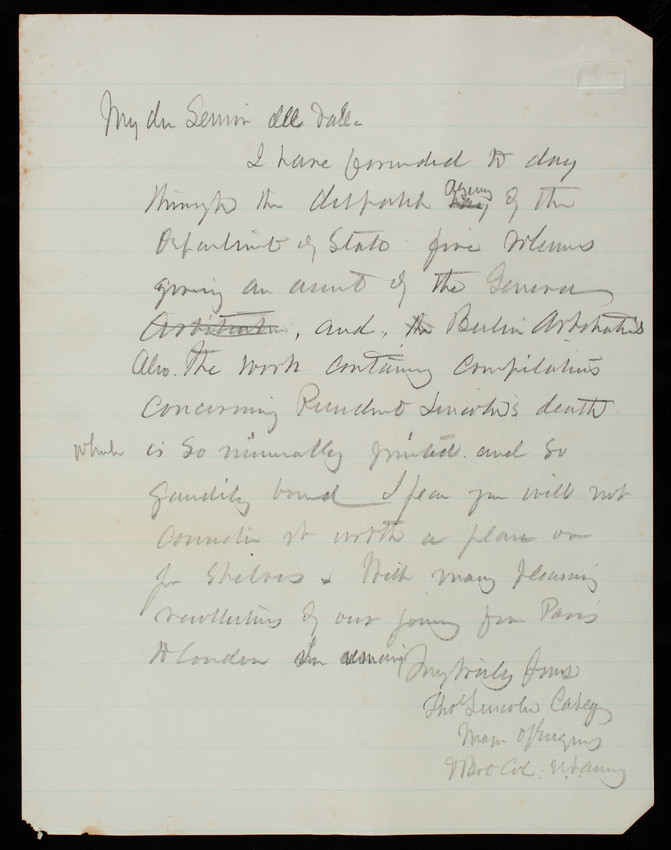 My dr Senior Dll Valle
I have forwarded to day
through the despatch Agency of the
Department of State five volumes
giving an account of the Geneva
Arbitration, and, the Berlin Arbitrations
Also. The work containing Compilations
Concerning President Lincoln's death
which is so minerally printed. and so
gaudily bound I fear you will not
Consider it worth a place on
your Shelves. With many pleasing
recollections of our joining from Paris
to London I am Very truly yours
Thos Lincoln Casey
Major of Engrs
& Bvt Col. U.S. Army